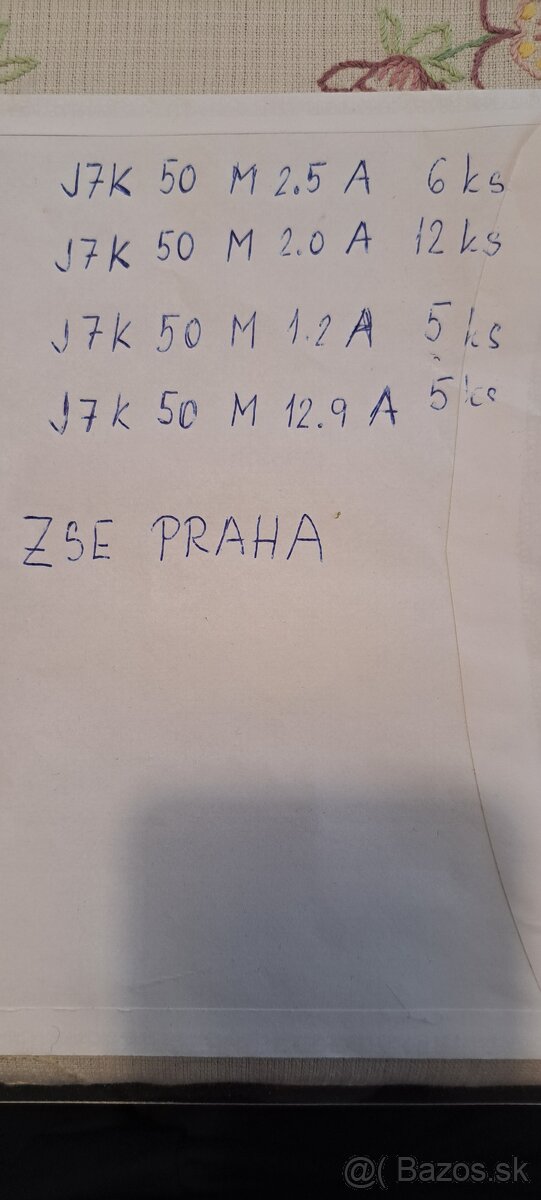 J7K 50 M 2.5 A 6 ks
J7K 50 M 2.0 A 12 ks
J7K 50 M 1.2 A 5 ks
J7K 50 M 12.9 A 5 ks
ZSE PRAHA
@( Bazos.sk